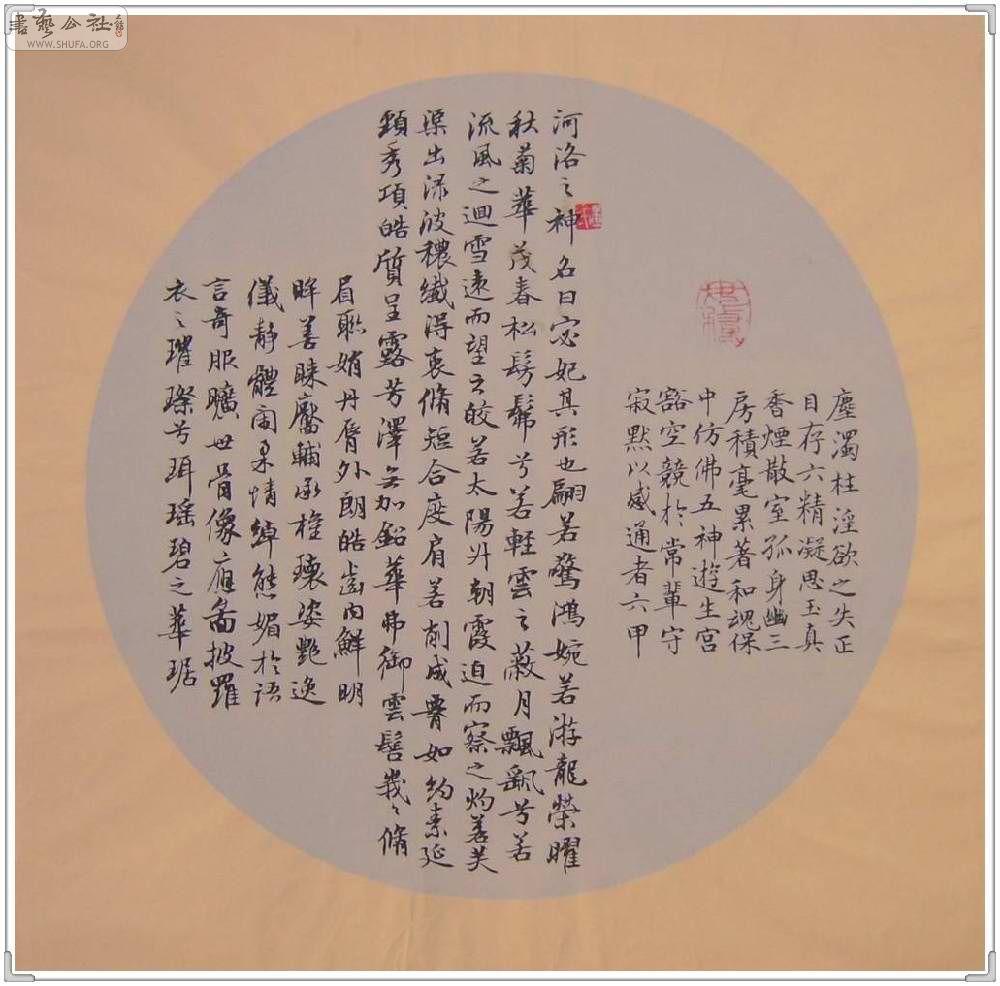 書藝公社
WWW.SHUFA.ORG
塵濁柱淫欲之失正
目存六精凝思玉真
香煙散室孤身幽三
房積毫累著和魂保
中仿佛五神遊生宫
豁空競於常輩守
寂默以感通者六甲
河洛之神名曰宓妃其形也翩若驚鴻婉若游龍榮曜
秋菊華茂春松髣髴兮若輕雲之蔽月飄颻兮若
流風之迴雪遠而望之皎若太陽升朝霞迫而察之灼若芙
渠出渌波穠纖得衷脩短合度肩若削成腰如約素延
頸秀項皓質呈露芳澤無加鉛華弗御雲髻峩峩脩
眉聯娟丹唇外朗皓齒内鮮明
眸善睞靨輔承權瓌姿艷逸
儀静體閑柔情綽態媚於語
言奇服曠世骨像應圖披羅
衣之璀璨兮珥瑶碧之華琚